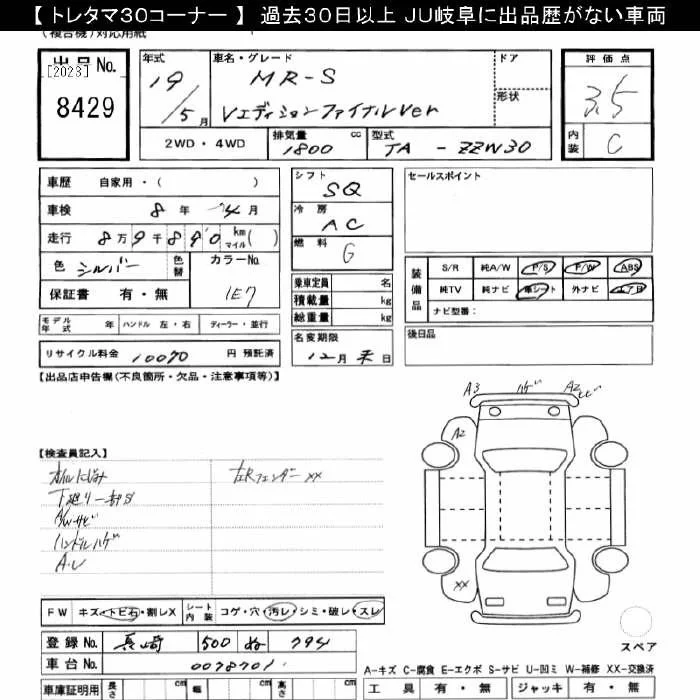 【 トレタマ30コーナー 】 過去30日以上 JU岐阜に出品歴がない車両
(複合機)対応用紙
出品No.
[2023]
8429
年式
19/5月
車名・グレード
MR-S
Vエディションファイナルver
ドア
形状
評価点
3.5
内装
C
2WD・4WD
排気量
1800 cc
型式
TA - ZZW30
車歴 自家用・( )
車検 8年 4月
走行 8万9千890 km マイル( )
色 シルバー 色替 カラーNo.
保証書 有・無 1E7
モデル年式 年 ハンドル 左・右 ディーラー・並行
リサイクル料金 10070 円 預託済
シフト SQ
冷房 AC
燃料 G
乗車定員 名
積載量 kg
総重量 kg
名変期限
12月末日
セールスポイント
装備品
S/R 純A/W P/S P/W ABS
純TV 純ナビ 革シート 外ナビ エアB
ナビ型番:
後日品
【出品店申告欄(不良箇所・欠品・注意事項等)】
【検査員記入】
オイルにじみ 左Rフェンダーxx
下廻り一部サビ
A/Wサビ
ハンドルハゲ
A・U
A3 ハゲ A2
A2
XX
FW キズ・トビ石・割レX シート内装 コゲ・穴・汚レ・シミ・破レ・スレ
登録No. 500 794
車台No. 0078701
スペア
A-キズ C-腐食 E-エクボ S-サビ U-凹ミ W-補修 XX-交換済
車庫証明用 長さ cm 幅 cm 高さ cm
工具 有・無 ジャッキ 有・無